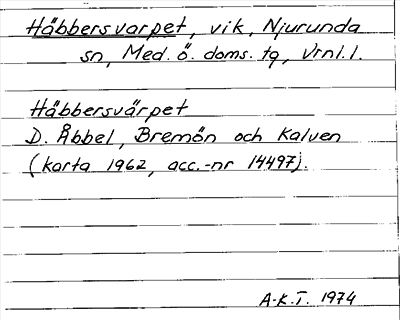 Häbbersvarpet, vik, Njurunda
sn, Med. ö. doms. tg, Vrnl. l.
Häbbersvärpet
D. Åbbel, Bremön och Kalven
(karta 1962, acc.-nr 14497).
A-K.T. 1974